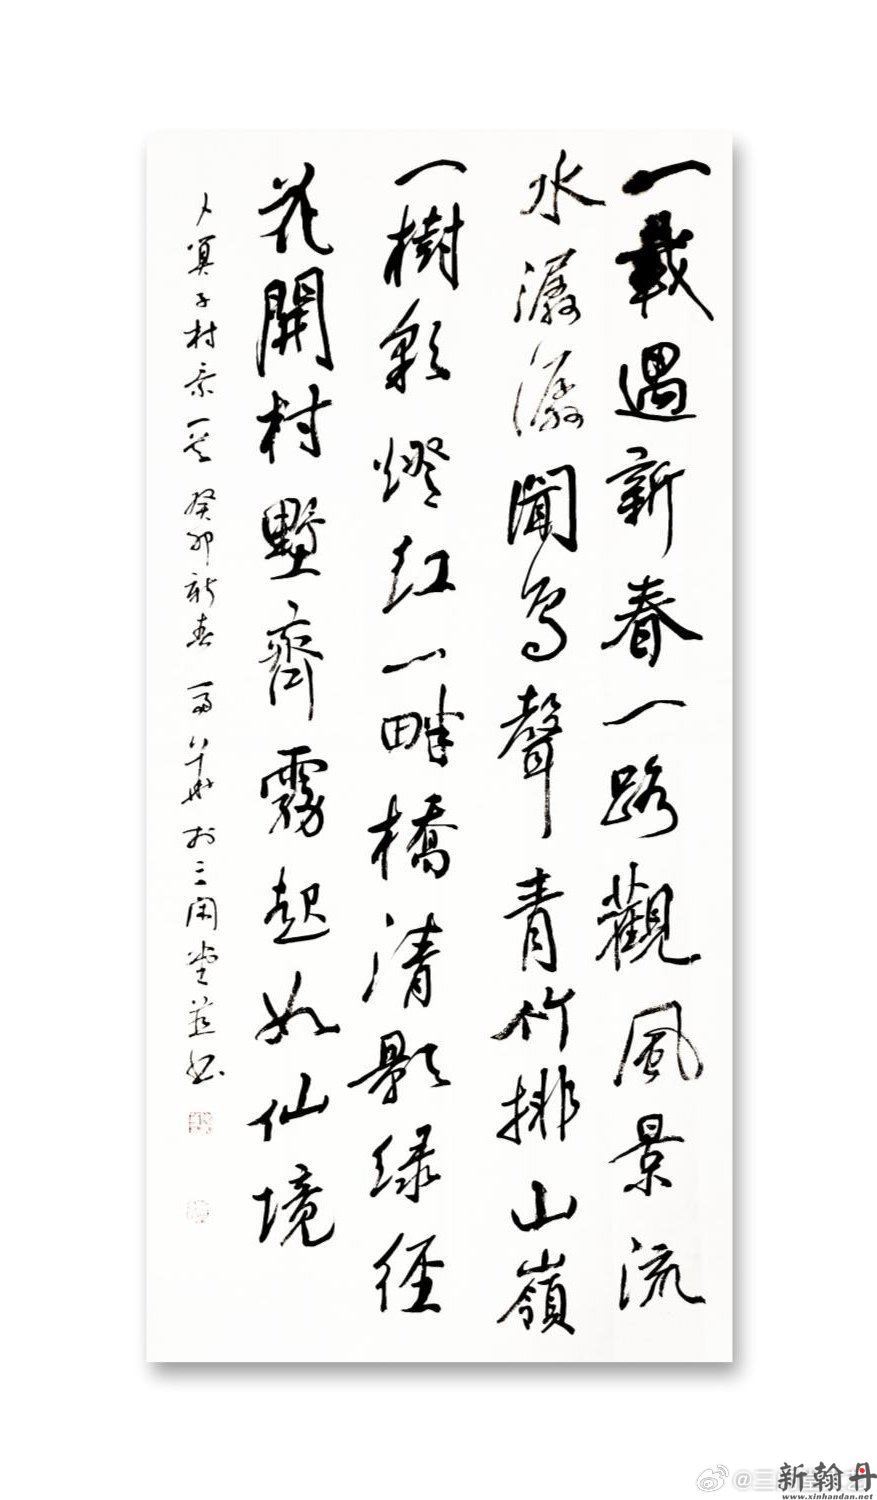 一載遇新春一路觀風景流
水潺潺聞鳥聲青竹排山嶺
一樹彩燈紅一畔橋清影绿徑
花開村墅齊霧起如仙境
卜算子村景一 癸卯新春 於三闲堂並书
新翰丹
www.xinhandan.net